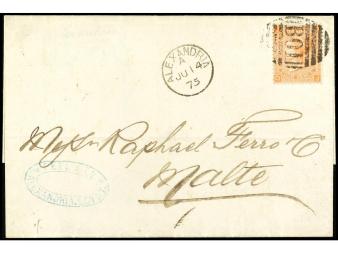 ALEXANDRIA
A
JU 14
75
B01
Mess Raphael Ferro & C
Malte
ALEXANDRIE